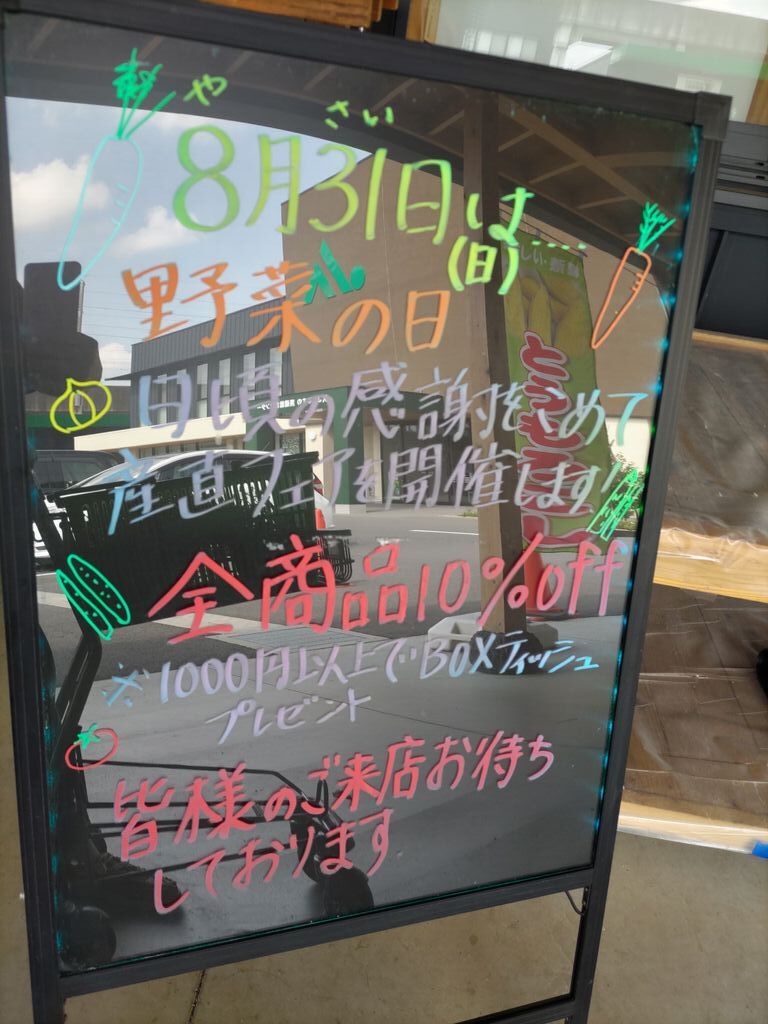 や さい
8月31日は....
(日)
野菜の日
日頃の感謝をこめて
産直フェアを開催します!
全商品10%off
※1000円以上でBOXティッシュ
プレゼント
皆様のご来店お待ち
しております